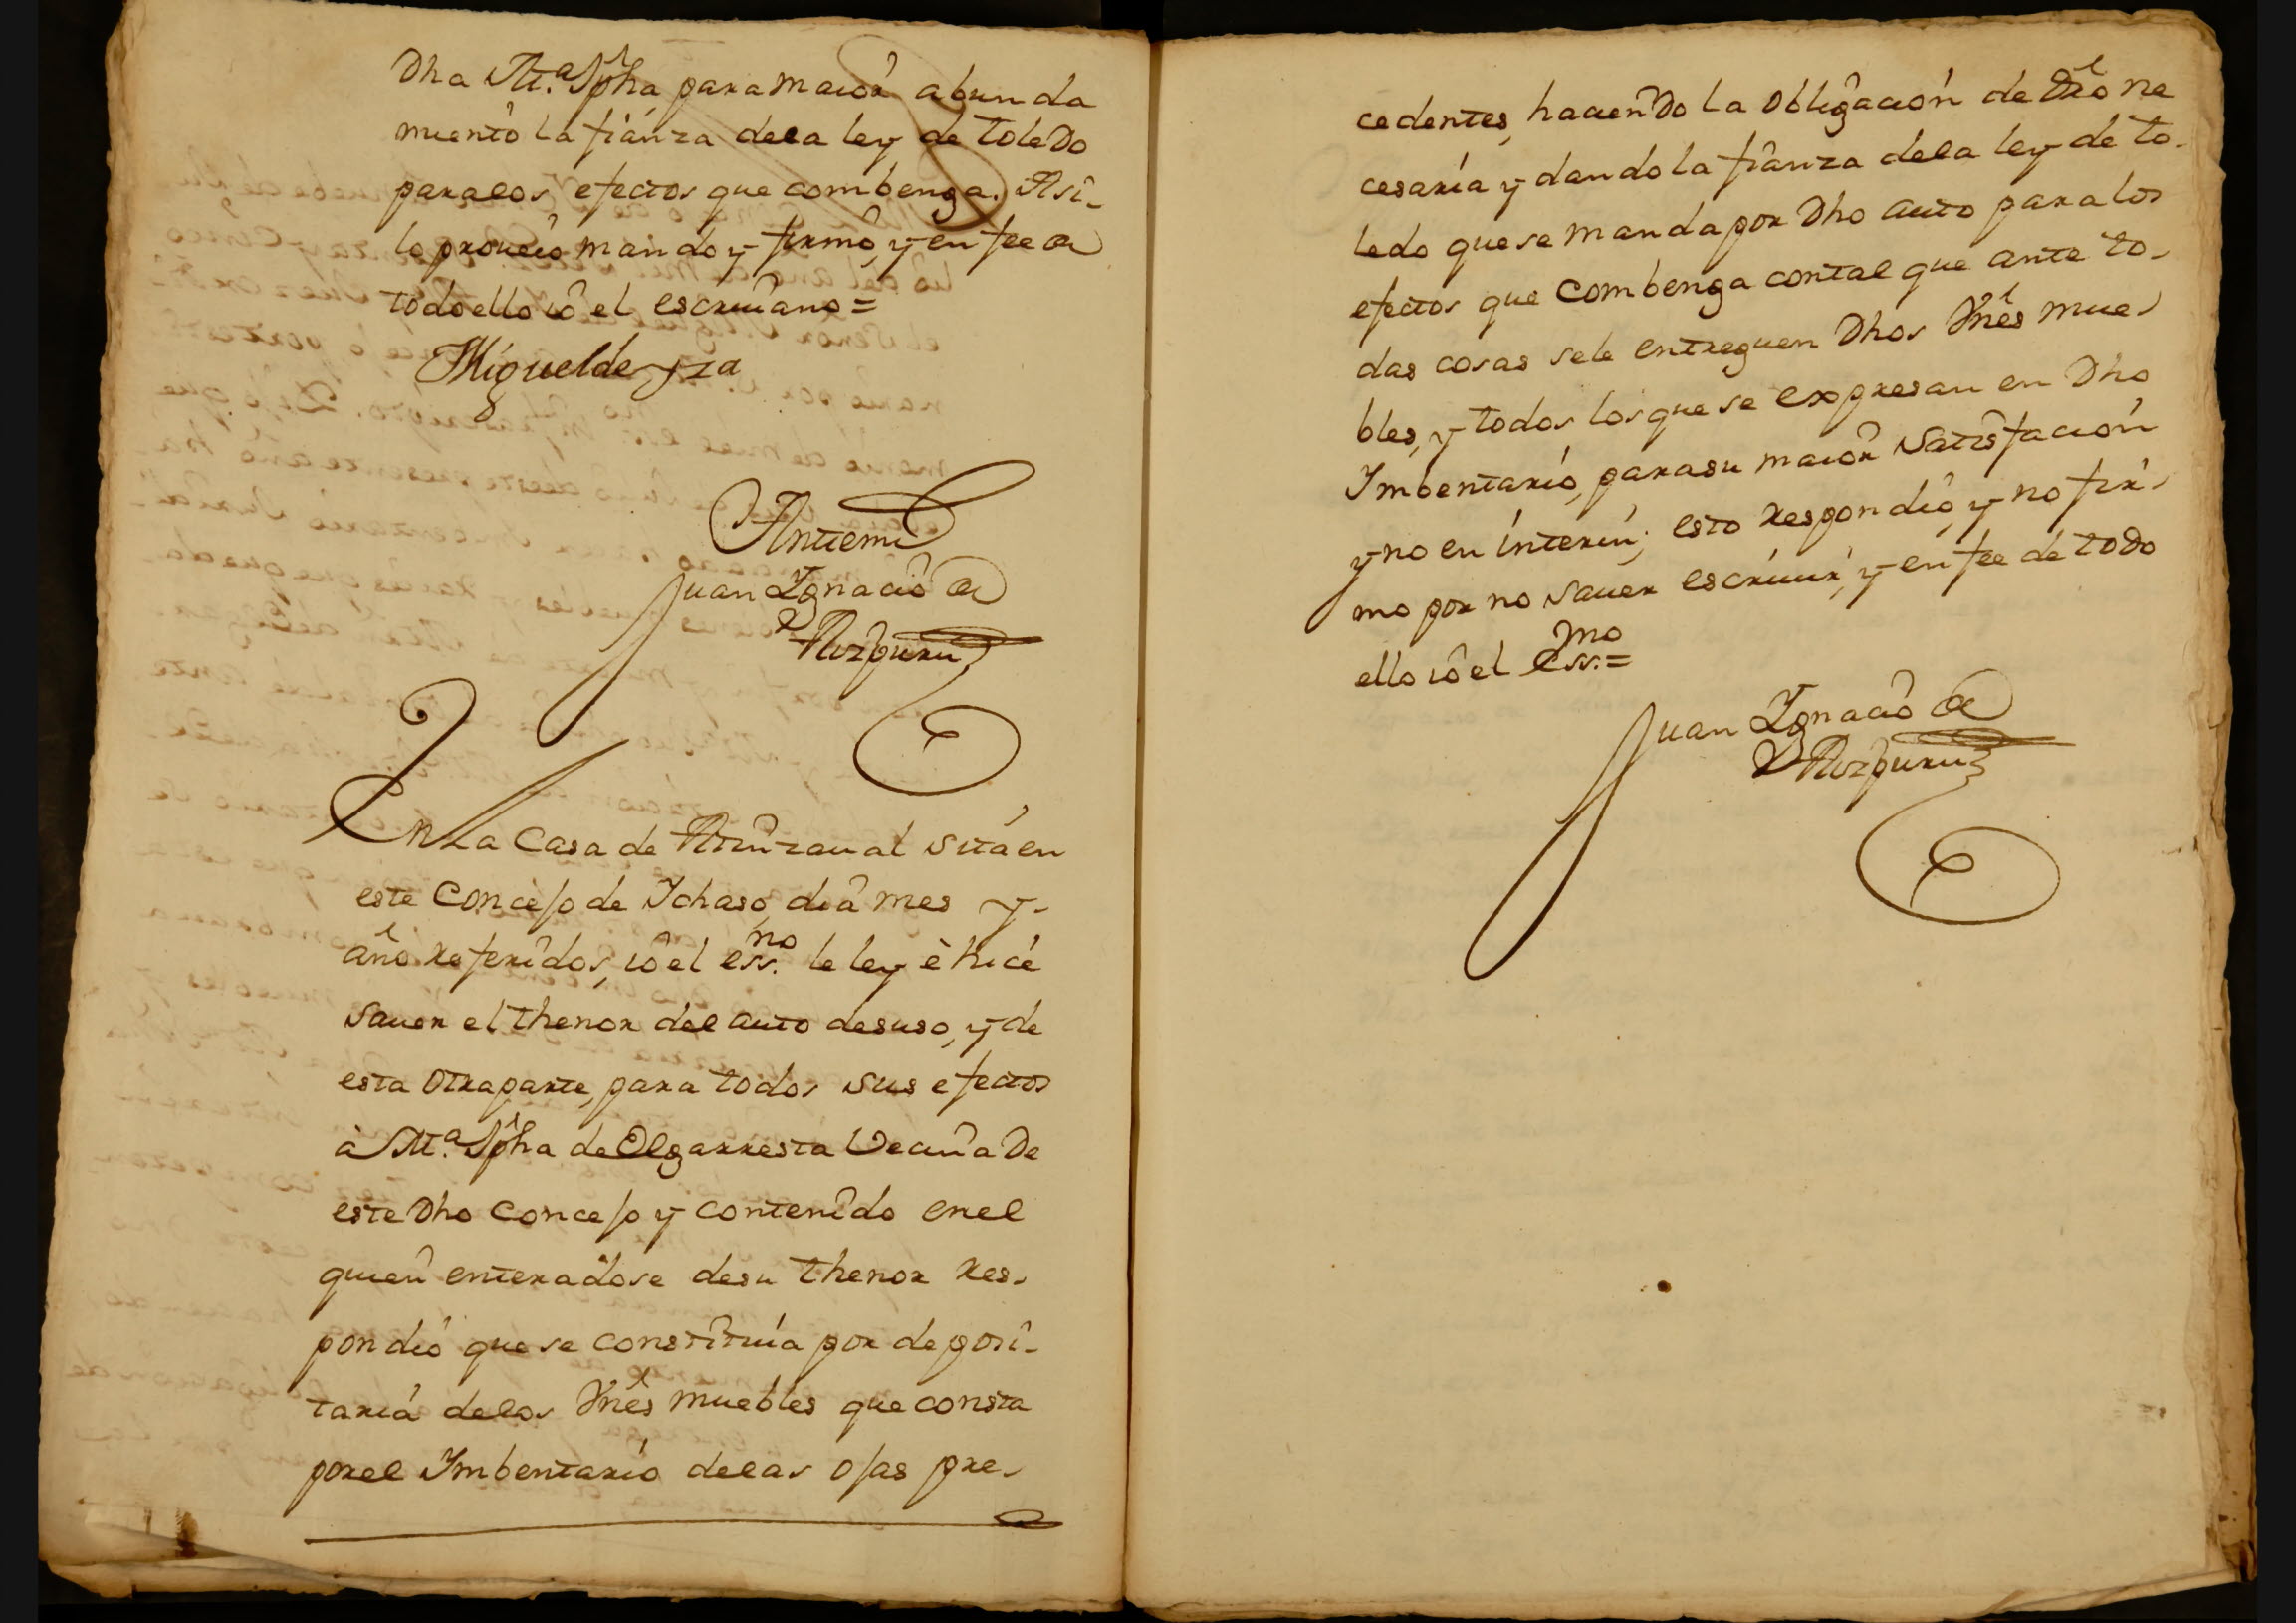 Dha M.ª Jpha, para maior abunda
miento la fianza dela ley de toledo
paralos efectos que combenga. Asi-
lo proveio mando y firmo, y en fee de
todoello io el escriuano =
Miguel de Yza
Antemi
Juan Ygnacio de
Aozpuru
En La Casa de Atinzaual sita en
este Concejo de Ichaso, dia mes y-
año referidos, io el ess.no le ley è hicé
sauer el thenor del auto desuso, y de
esta otraparte, para todos sus efectos
à M.ª Jpha de Olgarresta Vecina De
este Dho Concejo y contenido enel
quien enteradose desu thenor res-
pondio que se constituia por deposi-
taria delos Vnes muebles que consta
porel Imbentario delas ojas pre-
cedentes, haciendo la obligacion de Dro ne
cesaria y dando la fianza dela ley de to-
ledo que se manda por Dho auto para los
efectos que combenga contal que ante to-
das cosas sele entreguen Dhos Vnes mue-
bles, y todos los que se expresan en Dho
Imbentario, parasu maior satisfacion
y no en interin; esto respondio, y no fir-
mo por no sauer escriuir, y en fee de todo
ello io el Ess.mo =
Juan Ygnacio de
Aozpuru